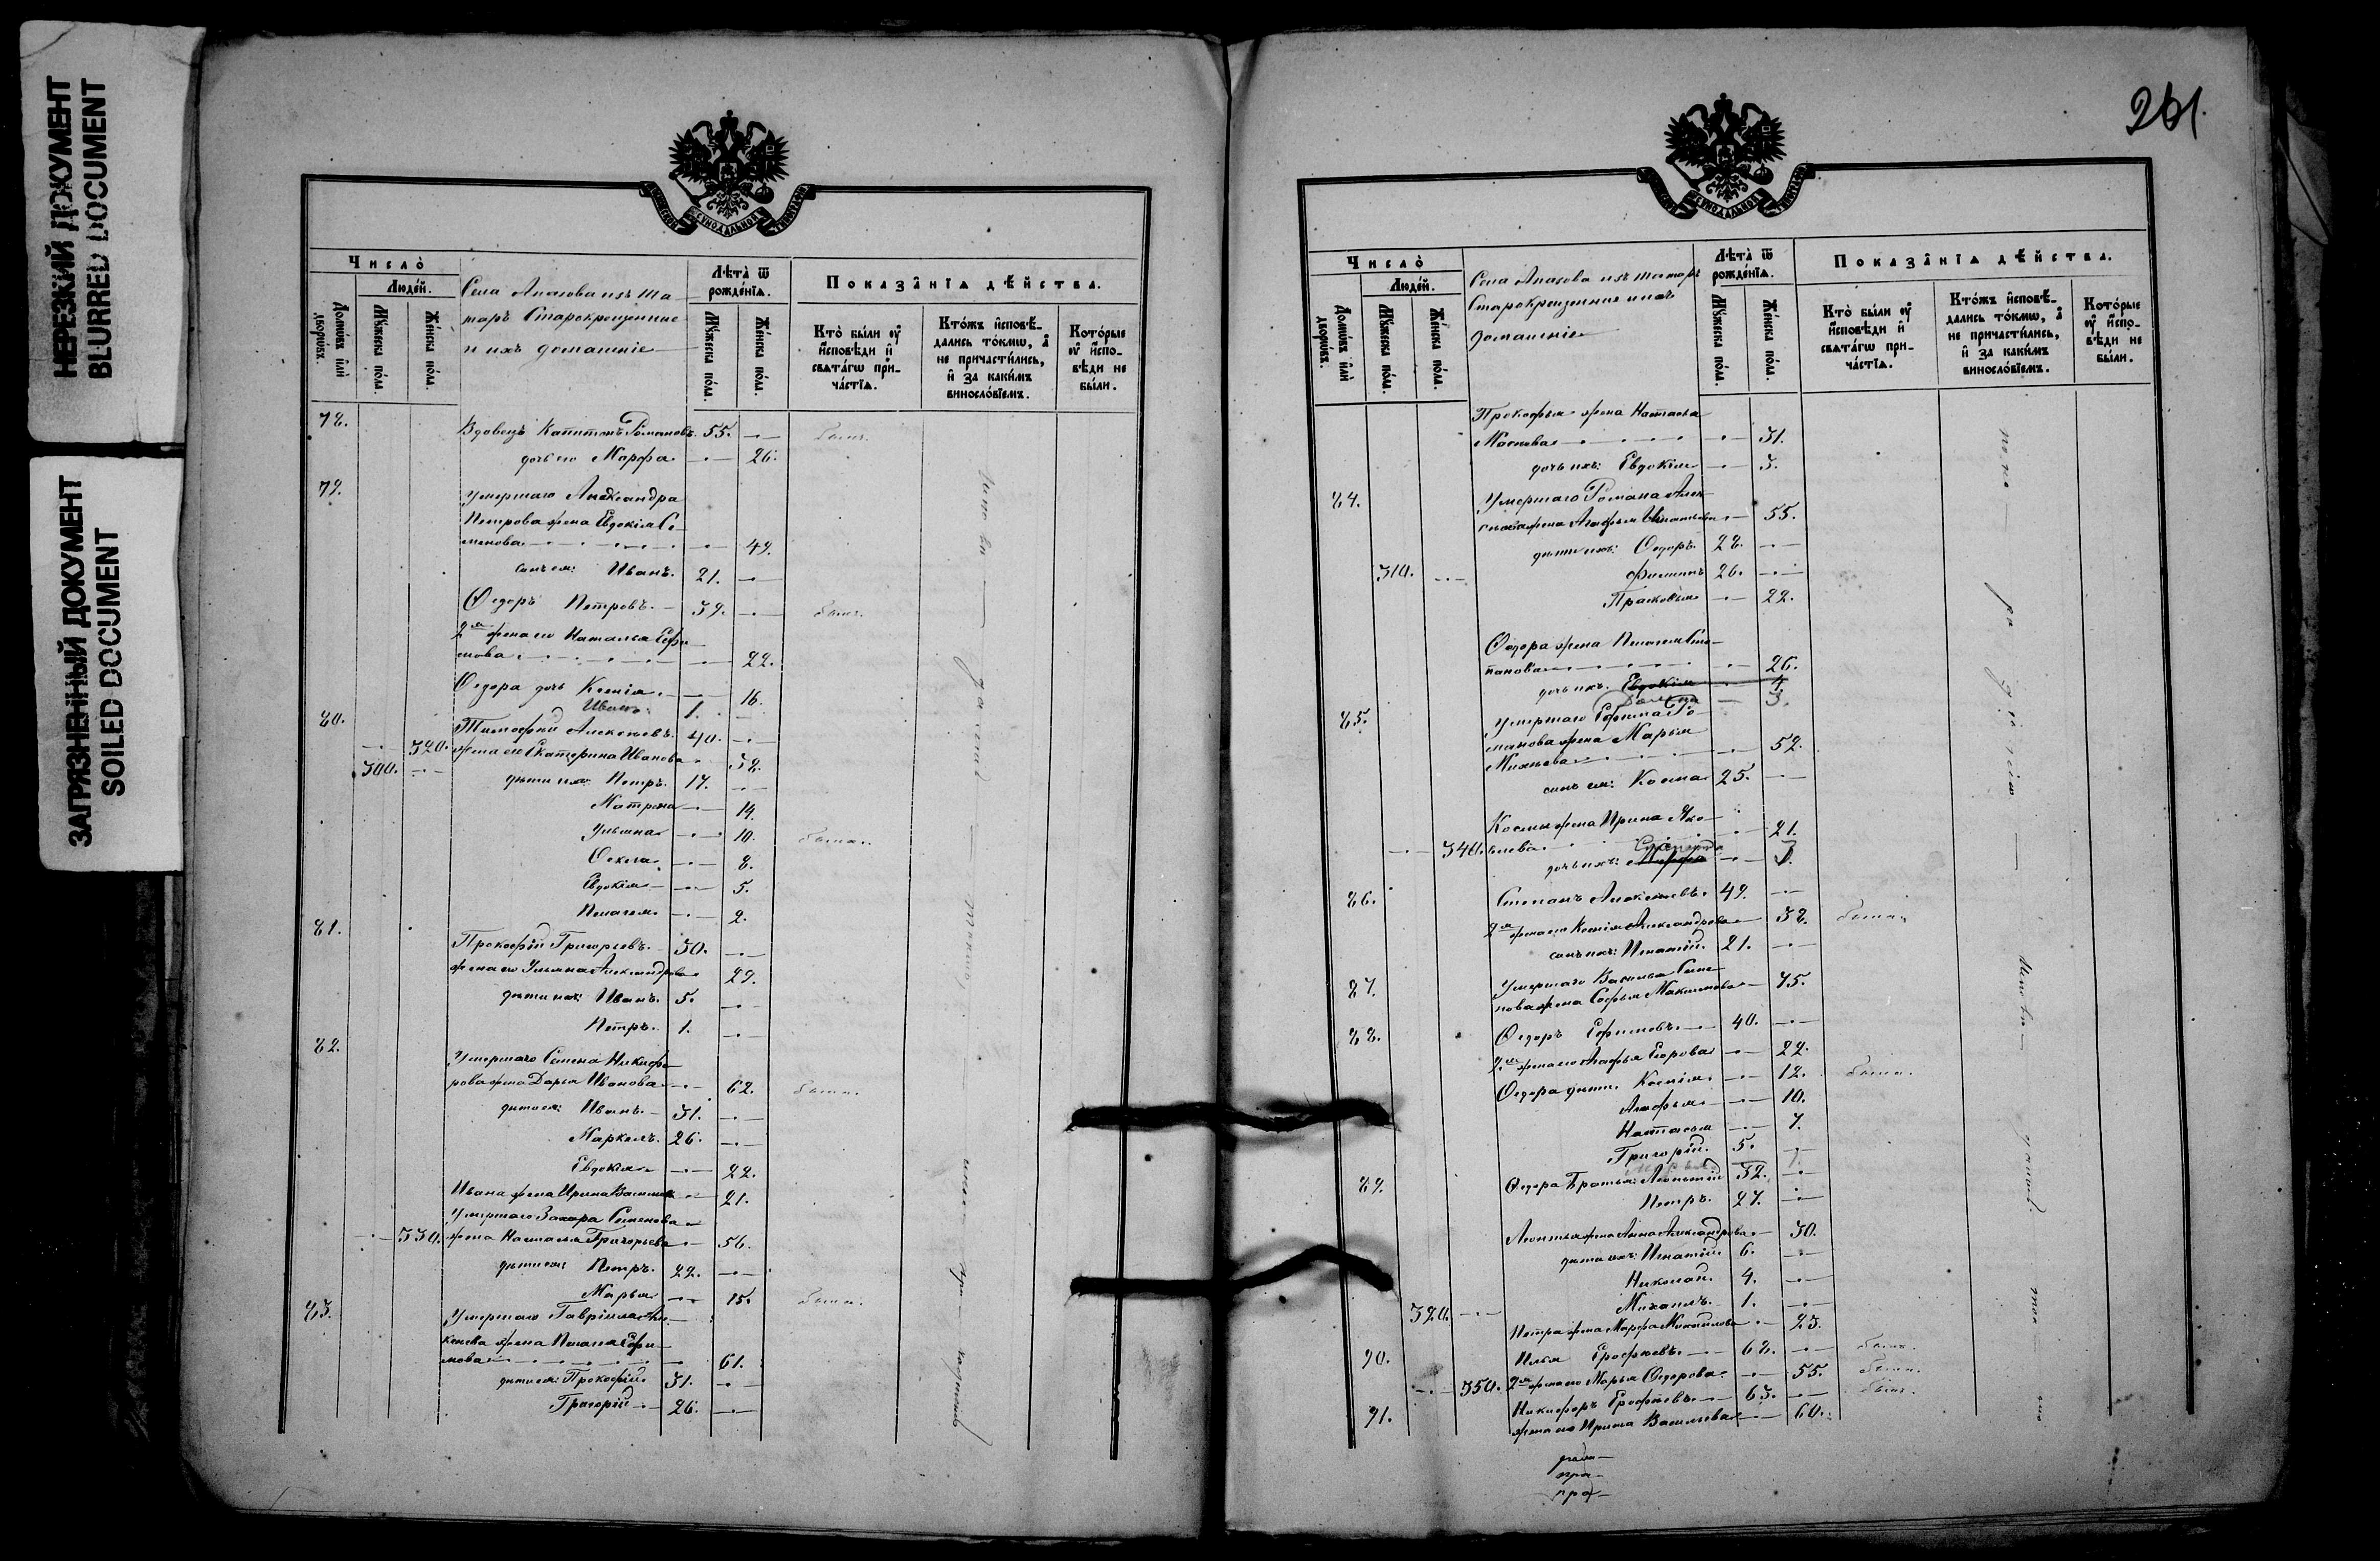 НЕРЕЗКИЙ ДОКУМЕНТ
BLURRED DOCUMENT
ЗАГРЯЗНЕННЫЙ ДОКУМЕНТ
SOILED DOCUMENT
СѴНОДАЛЬНОЙ
Число̀
Людей.
Домѡвъ или дворѡвъ.
Мꙋжеска пола.
Женска пола.
Села Апазова изъ та-
таръ Старокрещенные
и ихъ домашніе
Лѣта ѿ рожденїѧ.
Мꙋжеска пола.
Женска пола.
Показанїѧ дѣйства.
Кто были ᲂу҆ исповѣди и свѧтагѡ причастїѧ.
Ктожъ исповѣдались токмѡ, а не причастились, и за какимъ винословїемъ.
Которые ᲂу҆ исповѣди не были.
78. Вдовецъ Капитонъ Романовъ. 55.
дочь его Марфа 26.
79. Умершаго Александра
Петрова жена Евдокія Се-
менова 49.
сынъ ея: Иванъ. 21.
Ѳедоръ Петровъ. 39.
2я жена его Наталья Ефи-
мова 22.
Ѳедора дочь Ксенія 16.
Иванъ 1.
80. Тимофей Алексѣевъ. 40.
320. жена его Екатерина Иванова 38.
300. дѣти ихъ: Петръ. 17.
Матрона 14.
Ульяна 10.
Ѳекла 8.
Евдокія 5.
Пелагея 2.
81. Прокофій Григорьевъ. 30.
жена его Ульяна Александрова 29.
дѣти ихъ: Иванъ. 5.
Петръ. 1.
82. Умершаго Семена Никифо-
рова жена Дарья Иванова 62.
дѣти ея: Иванъ. 31.
Маркелъ. 26.
Евдокія 22.
Ивана жена Ирина Васильева 21.
Умершаго Захара Семенова
330. жена Наталья Григорьева 56.
дѣти ея: Петръ. 22.
Марья 15.
83. Умершаго Гавріила Але-
ксѣева жена Пелагея Ефи-
мова 61.
дѣти ея: Прокофій 31.
Григорій 26.
261.
СѴНОДАЛЬНОЙ
Число̀
Людей.
Домѡвъ или дворѡвъ.
Мꙋжеска пола.
Женска пола.
Села Апазова изъ татаръ
Старокрещенные и ихъ
домашніе
Лѣта ѿ рожденїѧ.
Мꙋжеска пола.
Женска пола.
Показанїѧ дѣйства.
Кто были ᲂу҆ исповѣди и свѧтагѡ причастїѧ.
Ктожъ исповѣдались токмѡ, а не причастились, и за какимъ винословїемъ.
Которые ᲂу҆ исповѣди не были.
Прокофья жена Настасья
31.
дочь ихъ: Евдокія 3.
84. Умершаго Романа Алек-
сѣева жена Агафья Игнатьева 55.
дѣти ихъ: Ѳедоръ 28.
310. Филиппъ 26.
Прасковья 22.
Ѳедора жена Пелагея Сте-
панова 26.
дочь ихъ. Евдокія 4
3.
85. Умершаго Ефима Ро-
манова жена Марья
Михѣева 52.
сынъ ея: Косма 25.
Космы жена Ирина Яко-
340. влева 21.
дочь ихъ: Марфа
86. Степанъ Алексѣевъ. 49.
2я жена его Ксенія Александрова 38.
сынъ ихъ: Игнатій. 21.
87. Умершаго Василья Семе-
нова жена Софья Максимова 75.
88. Ѳедоръ Ефимовъ. 40.
2я жена его Агафья Егорова 22.
Ѳедора дѣти. Ксенія 12.
Агафья 10.
Настасья 7.
Григорій. 5.
89. Ѳедора братья: Леонтій 32.
Петръ. 27.
Леонтья жена Анна Александрова 30.
дѣти ихъ: Игнатій. 6.
Николай. 4.
320. Михаилъ. 1.
Петра жена Марфа Михайлова 23.
90. Илья Ерофѣевъ. 68.
350. 2я жена его Марья Ѳедорова 55.
91. Никифоръ Ерофѣевъ. 63.
жена его Ирина Васильева 60.